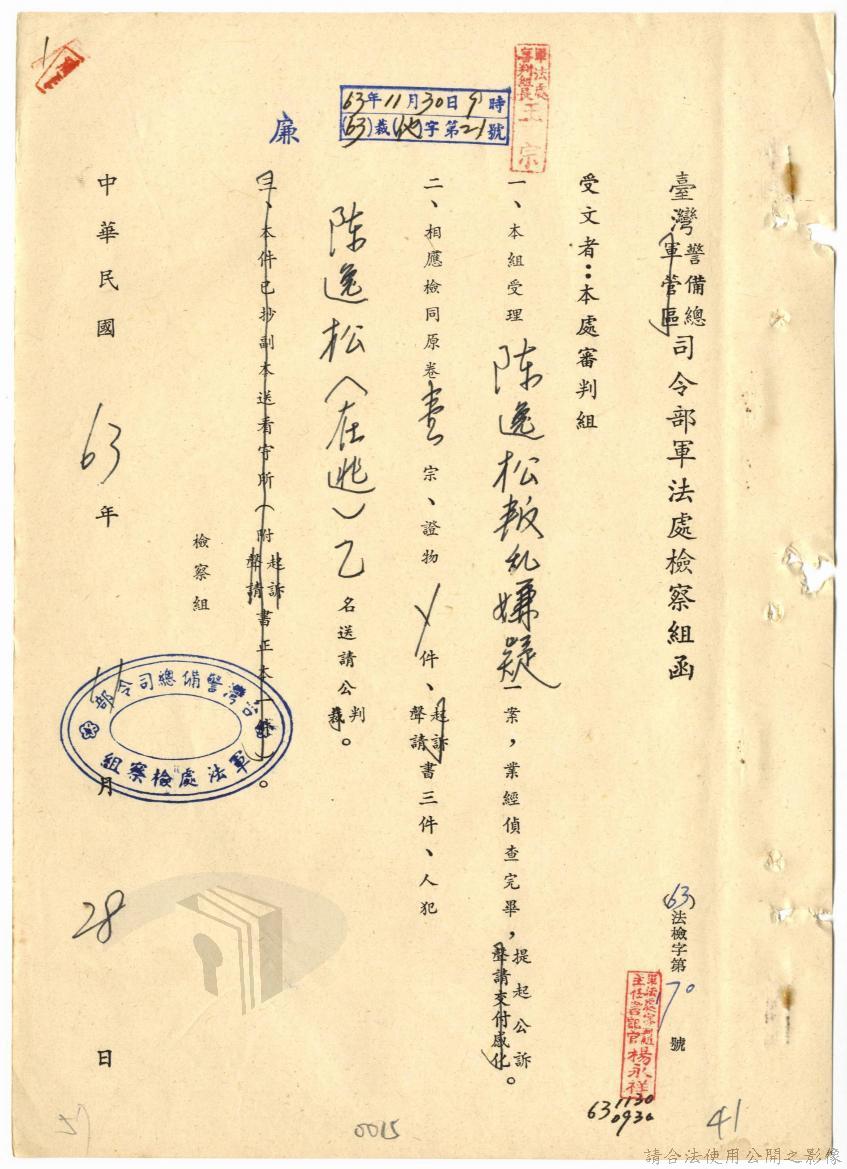 臺灣警備總司令部軍法處檢察組函
軍管區
(63)法檢字第170號
受文者：本處審判組
一、本組受理陈逸松叛乱嫌疑一案，業經偵查完畢，提起公訴。
聲請交付感化
二、相應檢同原卷壹宗、證物
件、起訴
聲請書三件、人犯
陈逸松（在逃）乙名送請公判
裁。
三、本件已抄副本送看守所（附起訴
聲請書正本一件）。
檢察組
中華民國63年11月28日
63年11月30日9時
(63)裁(他)字第21號
廉
軍法處
審判組長
王
宗
台灣警備總司令部
軍法處檢察組
主任書記官楊永祥
63 1130
0930
41
0015
57
請合法使用公開之影像